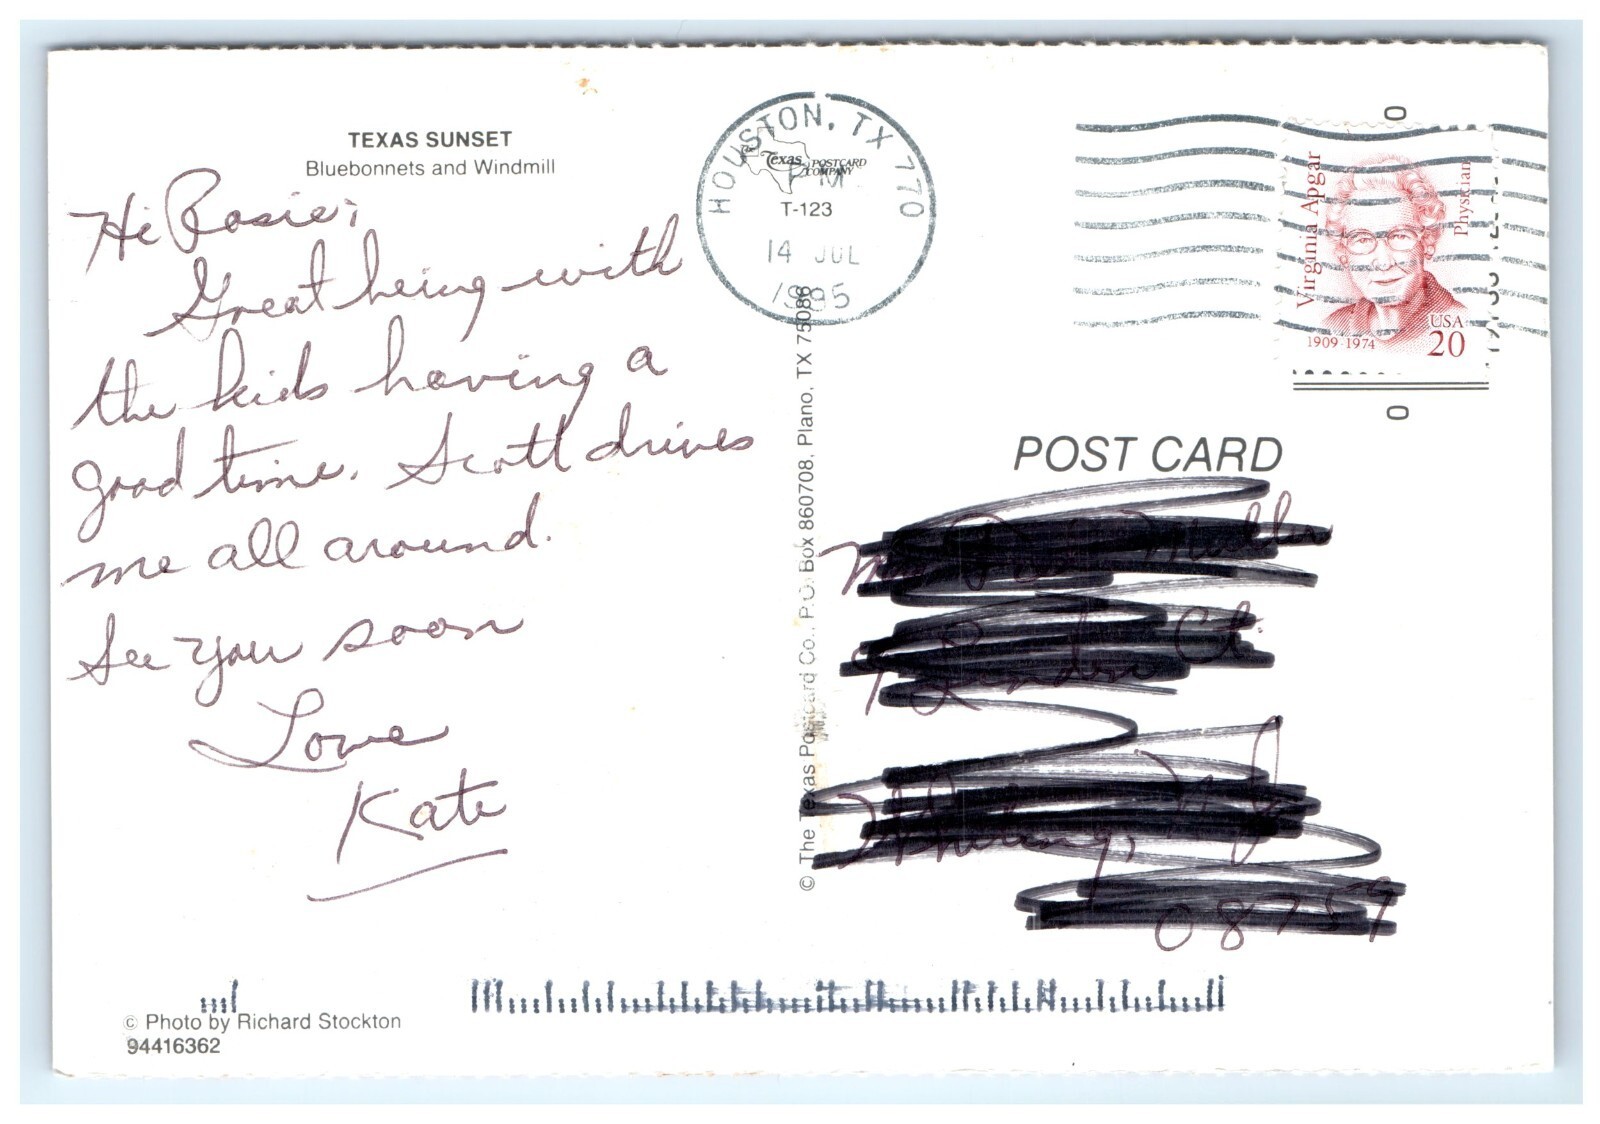 TEXAS SUNSET
Bluebonnets and Windmill
Hi Rosie,
Great being with
the kids having a
good time. Scott drives
me all around.
See you soon
Love
Kate
© Photo by Richard Stockton
94416362
© The Texas Postcard Co., P.O. Box 860708, Plano, TX 75086
HOUSTON, TX 770
The Texas POSTCARD COMPANY
PM
T-123
14 JUL
1995
Virginia Apgar
Physician
1909-1974
USA
20
POST CARD